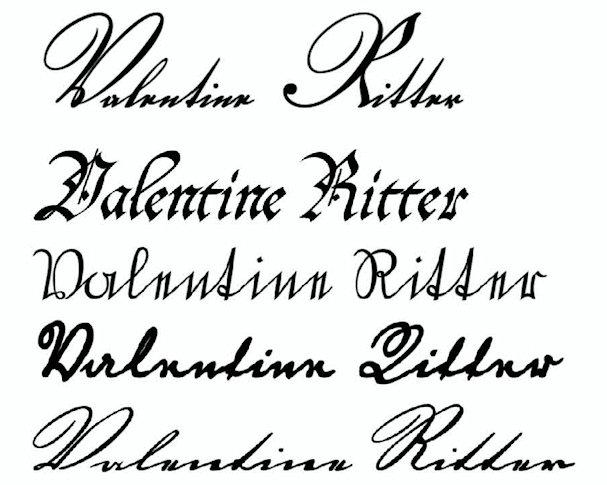 Valentine Ritter
Valentine Ritter
Valentine Ritter
Valentine Ritter
Valentine Ritter